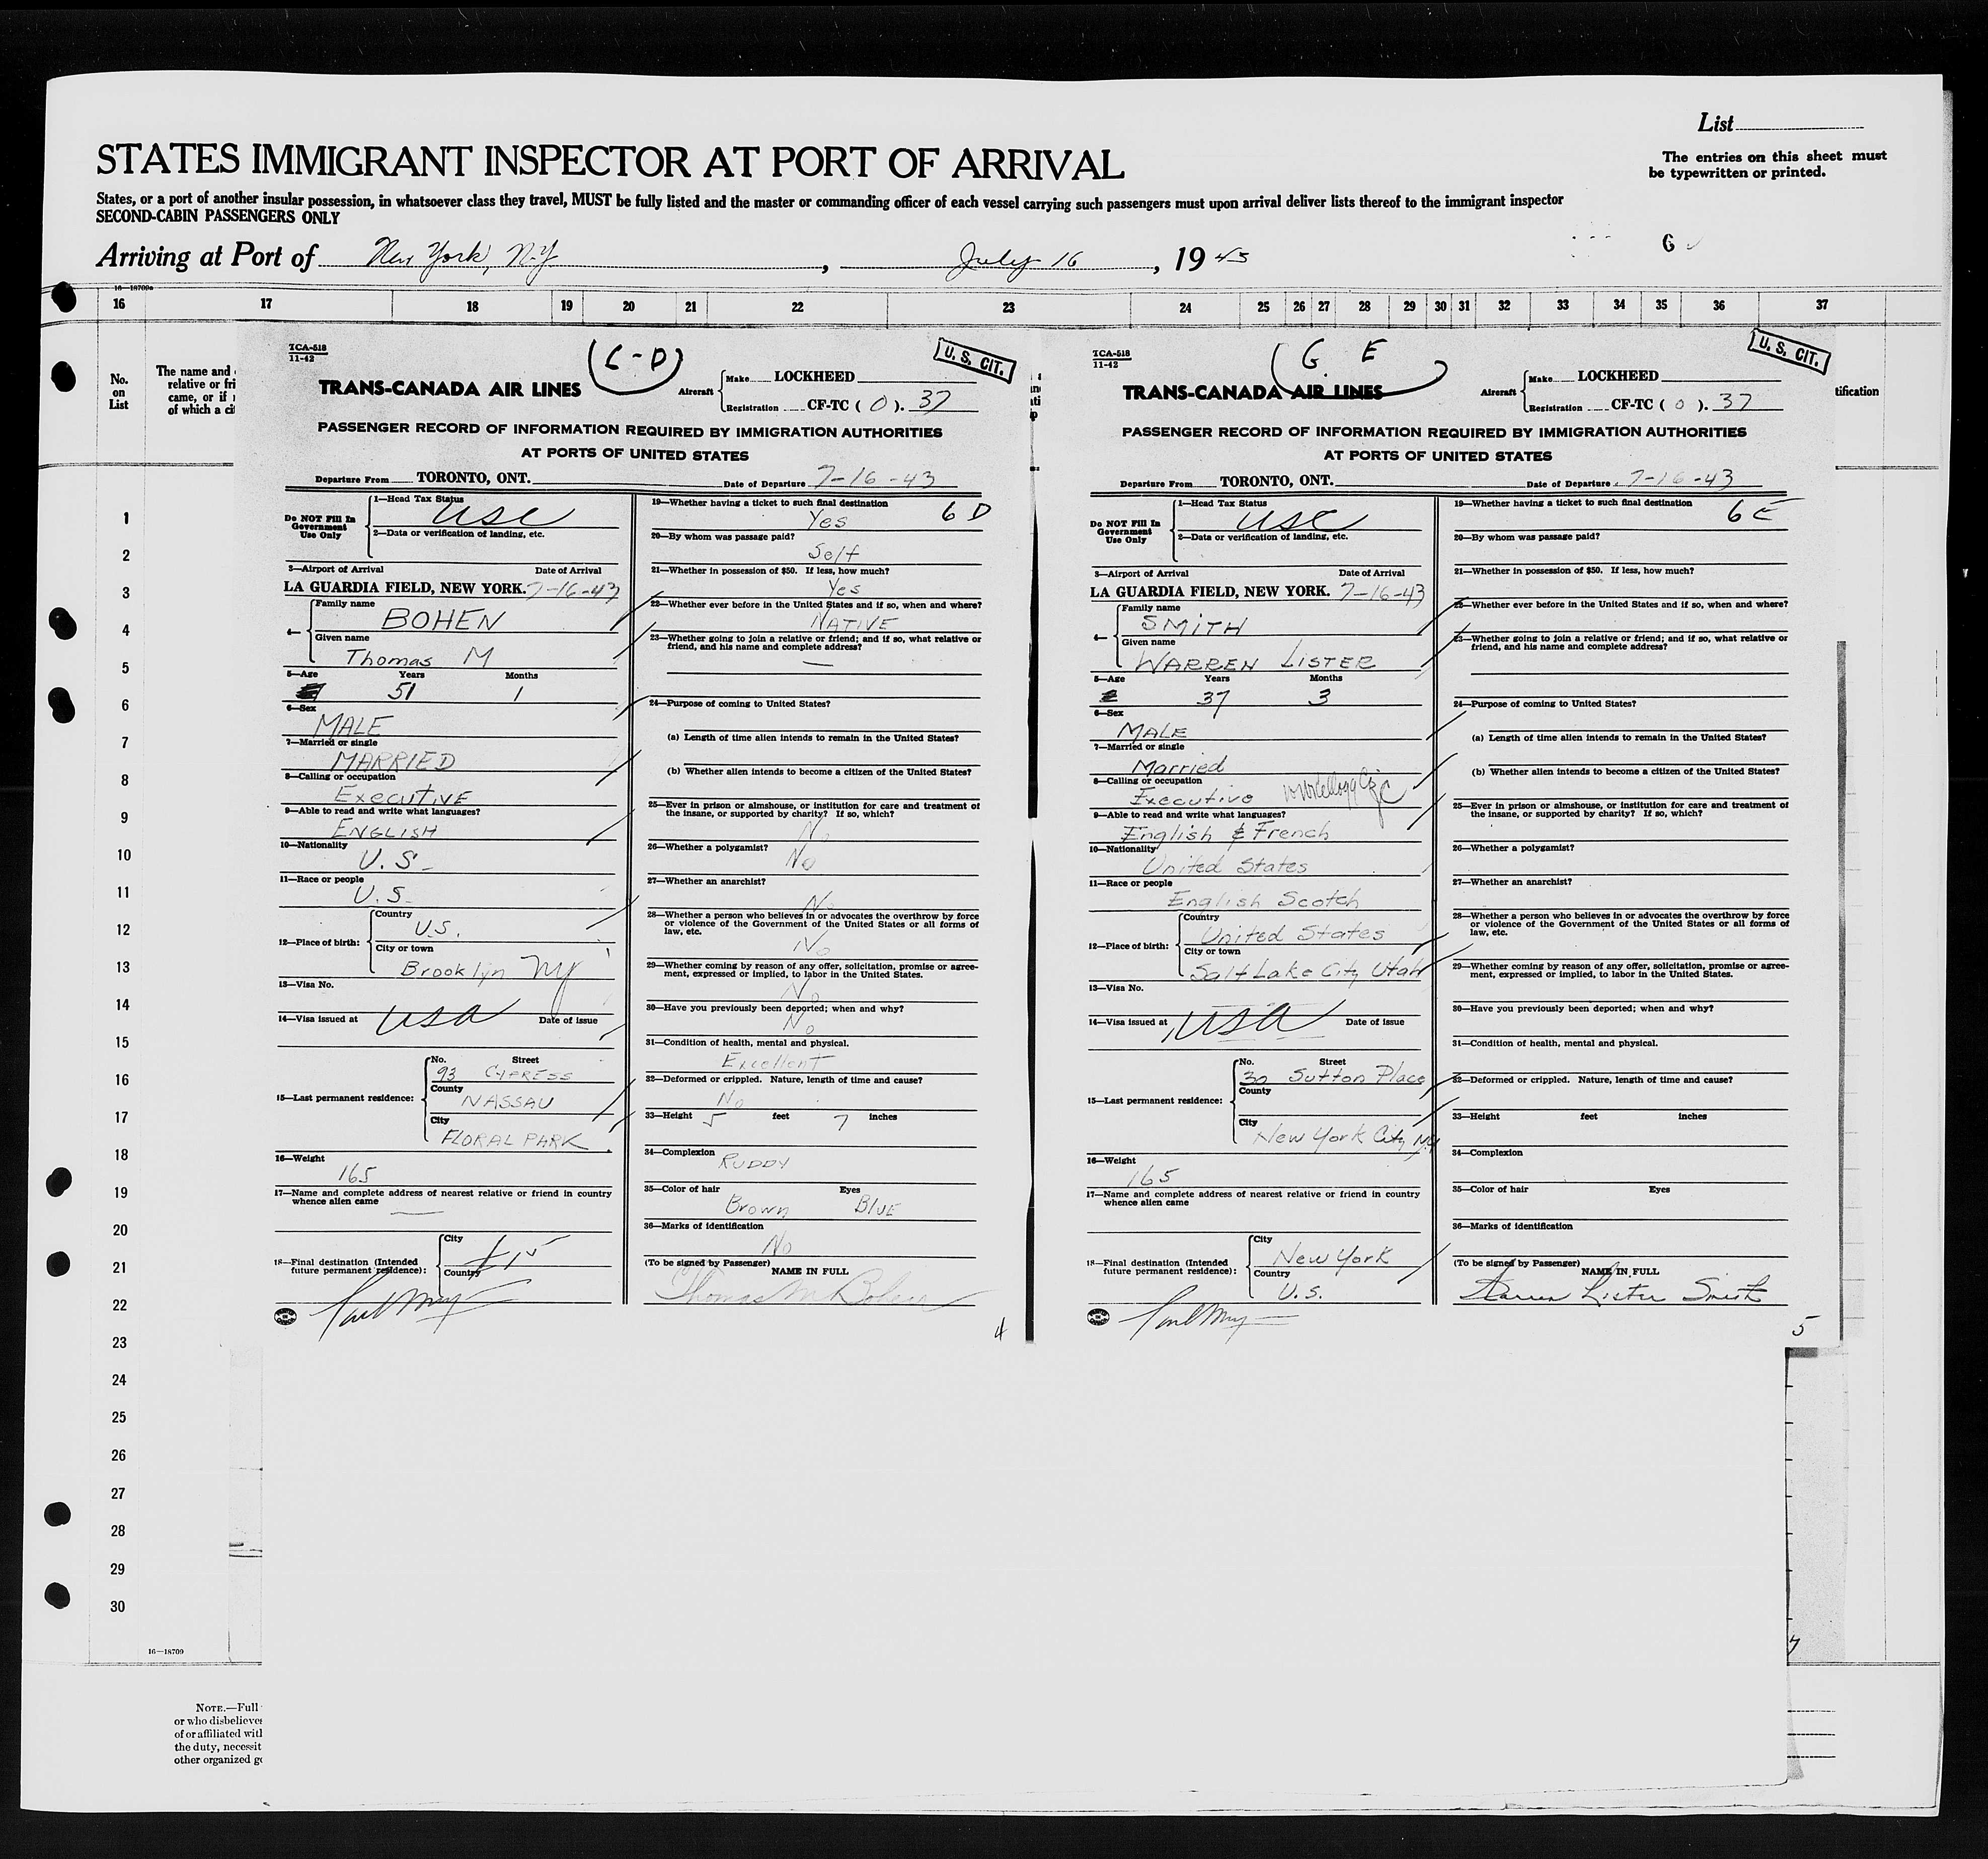 List
The entries on this sheet must
be typewritten or printed.
STATES IMMIGRANT INSPECTOR AT PORT OF ARRIVAL
States, or a port of another insular possession, in whatsoever class they travel, MUST be fully listed and the master or commanding officer of each vessel carrying such passengers must upon arrival deliver lists thereof to the immigrant inspector
SECOND-CABIN PASSENGERS ONLY
6
Arriving at Port of New York, N.Y. , July 16 , 19 43
16—18709a
16 17 18 19 20 21 22 23 24 25 26 27 28 29 30 31 32 33 34 35 36 37
No.
on
List
The name and
relative or fri
came, or if
of which a cit
tification
TCA-518
11-42
(6-D)
U. S. CIT.
TRANS-CANADA AIR LINES
Aircraft
Make LOCKHEED
Registration CF-TC ( 0 ). 37
PASSENGER RECORD OF INFORMATION REQUIRED BY IMMIGRATION AUTHORITIES
AT PORTS OF UNITED STATES
Departure From TORONTO, ONT. Date of Departure 7-16-43
Do NOT Fill In
Government
Use Only
1—Head Tax Status
USC
2—Data or verification of landing, etc.
3—Airport of Arrival Date of Arrival
LA GUARDIA FIELD, NEW YORK. 7-16-43
4—
Family name
BOHEN
Given name
Thomas M
5—Age Years Months
51 1
6—Sex
MALE
7—Married or single
MARRIED
8—Calling or occupation
Executive
9—Able to read and write what languages?
ENGLISH
10—Nationality
U.S.
11—Race or people
U.S.
12—Place of birth:
Country
U.S.
City or town
Brooklyn NY
13—Visa No.
14—Visa issued at USA Date of issue
15—Last permanent residence:
No. Street
93 CYPRESS
County
NASSAU
City
FLORAL PARK
16—Weight
165
17—Name and complete address of nearest relative or friend in country
whence alien came
—
18—Final destination (Intended
future permanent residence):
City
Country
19—Whether having a ticket to such final destination
6 D
Yes
20—By whom was passage paid?
Self
21—Whether in possession of $50. If less, how much?
Yes
22—Whether ever before in the United States and if so, when and where?
NATIVE
23—Whether going to join a relative or friend; and if so, what relative or
friend, and his name and complete address?
—
24—Purpose of coming to United States?
(a) Length of time alien intends to remain in the United States?
(b) Whether alien intends to become a citizen of the United States?
25—Ever in prison or almshouse, or institution for care and treatment of
the insane, or supported by charity? If so, which?
No
26—Whether a polygamist?
No
27—Whether an anarchist?
No
28—Whether a person who believes in or advocates the overthrow by force
or violence of the Government of the United States or all forms of
law, etc.
No
29—Whether coming by reason of any offer, solicitation, promise or agree-
ment, expressed or implied, to labor in the United States.
No
30—Have you previously been deported; when and why?
No
31—Condition of health, mental and physical.
Excellent
32—Deformed or crippled. Nature, length of time and cause?
No
33—Height 5 feet 7 inches
34—Complexion
RUDDY
35—Color of hair Eyes
Brown BLUE
36—Marks of identification
No
(To be signed by Passenger)
NAME IN FULL
Thomas M Bohen
4
TCA-518
11-42
(6 E)
U. S. CIT.
TRANS-CANADA AIR LINES
Aircraft
Make LOCKHEED
Registration CF-TC ( 0 ). 37
PASSENGER RECORD OF INFORMATION REQUIRED BY IMMIGRATION AUTHORITIES
AT PORTS OF UNITED STATES
Departure From TORONTO, ONT. Date of Departure 7-16-43
Do NOT Fill In
Government
Use Only
1—Head Tax Status
USC
2—Data or verification of landing, etc.
3—Airport of Arrival Date of Arrival
LA GUARDIA FIELD, NEW YORK. 7-16-43
4—
Family name
SMITH
Given name
WARREN LISTER
5—Age Years Months
37 3
6—Sex
MALE
7—Married or single
Married
8—Calling or occupation
Executive
9—Able to read and write what languages?
English & French
10—Nationality
United States
11—Race or people
English Scotch
12—Place of birth:
Country
United States
City or town
Salt Lake City Utah
13—Visa No.
14—Visa issued at USA Date of issue
15—Last permanent residence:
No. Street
30 Sutton Place
County
City
New York City NY
16—Weight
165
17—Name and complete address of nearest relative or friend in country
whence alien came
18—Final destination (Intended
future permanent residence):
City
New York
Country
U.S.
19—Whether having a ticket to such final destination
6 E
20—By whom was passage paid?
21—Whether in possession of $50. If less, how much?
22—Whether ever before in the United States and if so, when and where?
23—Whether going to join a relative or friend; and if so, what relative or
friend, and his name and complete address?
24—Purpose of coming to United States?
(a) Length of time alien intends to remain in the United States?
(b) Whether alien intends to become a citizen of the United States?
25—Ever in prison or almshouse, or institution for care and treatment of
the insane, or supported by charity? If so, which?
26—Whether a polygamist?
27—Whether an anarchist?
28—Whether a person who believes in or advocates the overthrow by force
or violence of the Government of the United States or all forms of
law, etc.
29—Whether coming by reason of any offer, solicitation, promise or agree-
ment, expressed or implied, to labor in the United States.
30—Have you previously been deported; when and why?
31—Condition of health, mental and physical.
32—Deformed or crippled. Nature, length of time and cause?
33—Height feet inches
34—Complexion
35—Color of hair Eyes
36—Marks of identification
(To be signed by Passenger)
NAME IN FULL
Warren Lister Smith
5
1
2
3
4
5
6
7
8
9
10
11
12
13
14
15
16
17
18
19
20
21
22
23
24
25
26
27
28
29
30
16—18709
NOTE.—Full
or who disbelieve
of or affiliated wit
the duty, necessit
other organized g